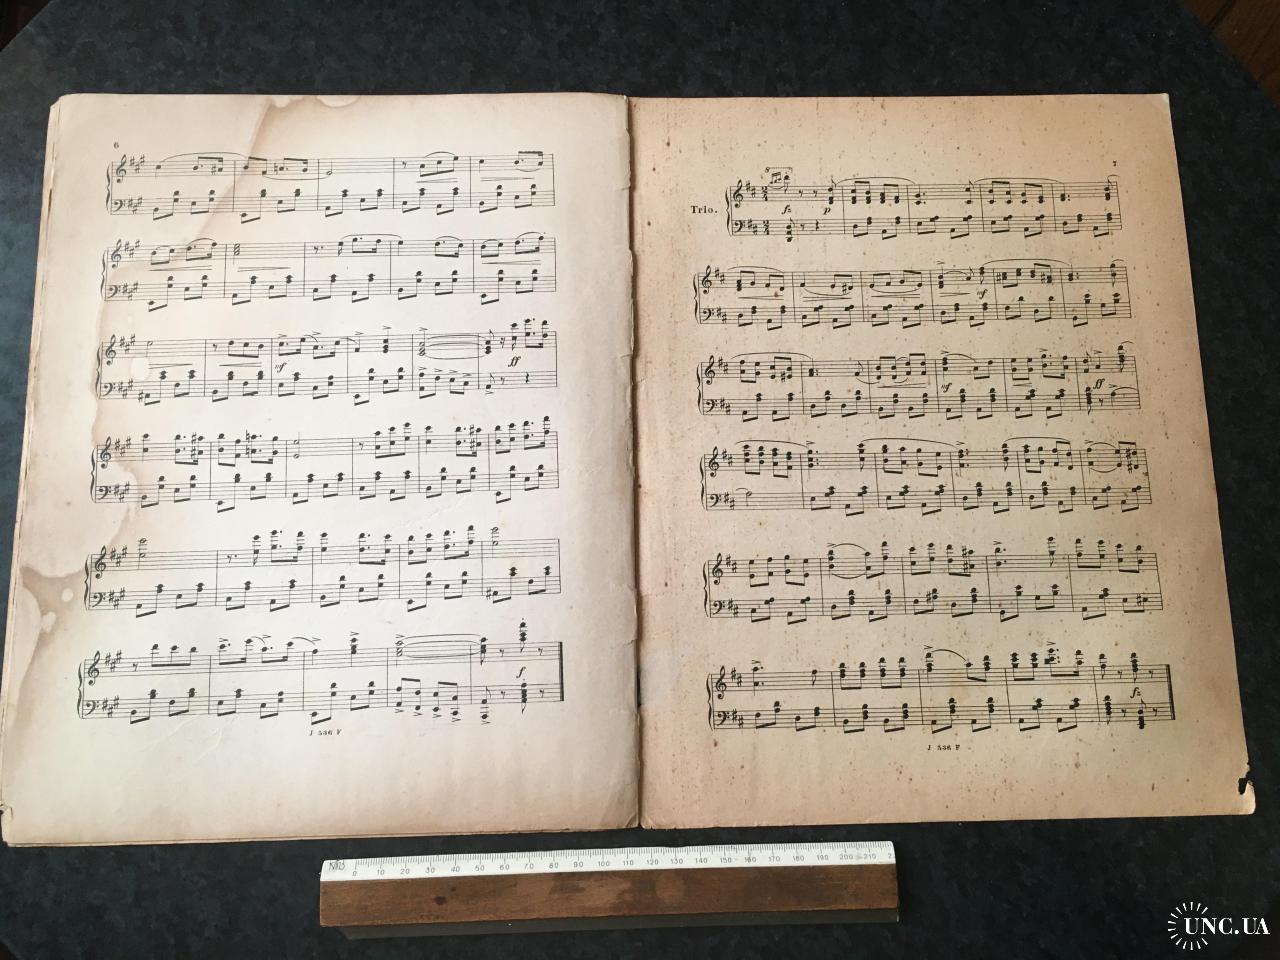 6
mf
ff
f
J 536 F
7
8
Trio.
fz
p
mf
mf
ff
fz
J 536 F
0 10 20 30 40 50 60 70 80 90 100 110 120 130 140 150 160 170 180 190 200 210
UNC.UA